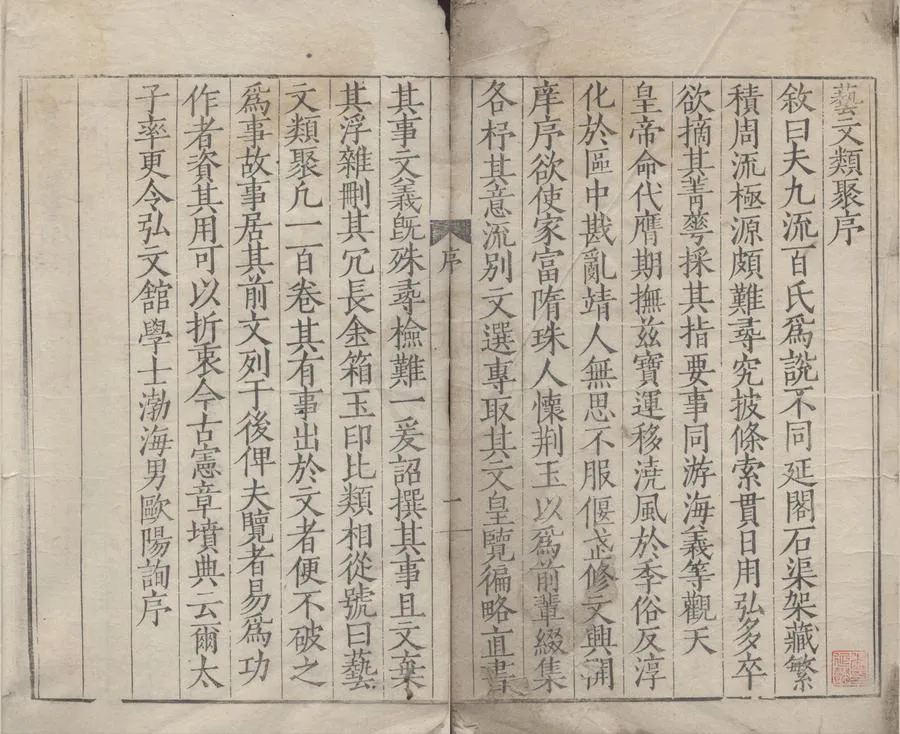 藝文類聚序
敘曰夫九流百氏爲說不同延閣石渠架藏繁
積周流極源頗難尋究披條索貫日用弘多卒
欲摘其菁華採其指要事同游海義等觀天
皇帝命代膺期撫茲寶運移澆風於季俗反淳
化於區中戡亂靖人無思不服偃武修文興開
庠序欲使家富隋珠人懷荆玉以爲前輩綴集
各杼其意流別文選專取其文皇覽徧略直書
序
一
其事文義旣殊尋檢難一爰詔撰其事且文棄
其浮雜刪其冗長金箱玉印比類相從號曰藝
文類聚凢一百卷其有事出於文者便不破之
爲事故事居其前文列于後俾夫覽者易爲功
作者資其用可以折衷今古憲章墳典云爾太
子率更令弘文館學士渤海男歐陽詢序